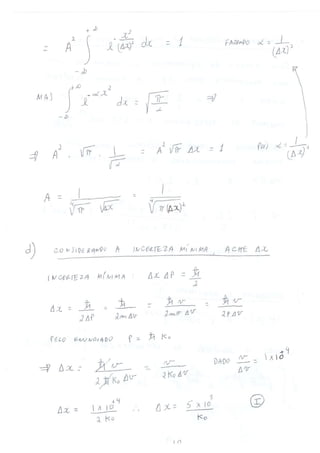 = A² ∫_{-∞}^{+∞} e^{-x²/(Δx)²} dx = 1 FAZENDO α = 1/(Δx)²
MAS ∫_{-∞}^{+∞} e^{-αx²} dx = √(π/α) ⇒
⇒ A² . √π . 1/√α = A² √π Δx = 1 POIS α = 1/(Δx)²
A = 1/(∜π √Δx) = 1/∜(π(Δx)²)
d) CONSIDERANDO A INCERTEZA MÍNIMA, ACHE Δx
INCERTEZA MÍNIMA ΔX ΔP = ħ/2
Δx = ħ/(2ΔP) = ħ/(2mΔv) = ħv/(2mvΔv) = ħv/(2PΔv)
PELO ENUNCIADO P = ħ K₀
⇒ Δx = ħv/(2ħK₀Δv) = v/(2K₀Δv) DADO v/Δv = 1x10⁴
Δx = 1x10⁴/(2K₀) ∴ Δx = 5x10³/K₀ (I)